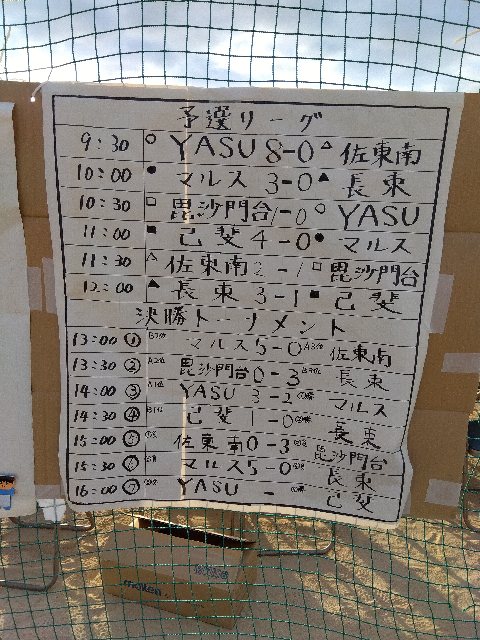 予選リーグ
9:30 ○ YASU 8-0 △ 佐東南
10:00 ● マルス 3-0 ▲ 長束
10:30 □ 毘沙門台 1-0 ○ YASU
11:00 ■ 己斐 4-0 ● マルス
11:30 △ 佐東南 2-1 □ 毘沙門台
12:00 ▲ 長束 3-1 ■ 己斐
決勝トーナメント
13:00 ① マルス 5-0 佐東南
13:30 ② A2位 毘沙門台 0-3 長束
14:00 ③ A1位 YASU 3-2 マルス
14:30 ④ B1位 己斐 1-0 長束
15:00 ⑤ 佐東南 0-3 毘沙門台
15:30 ⑥ マルス 5-0 長束
16:00 ⑦ YASU - 己斐
molten